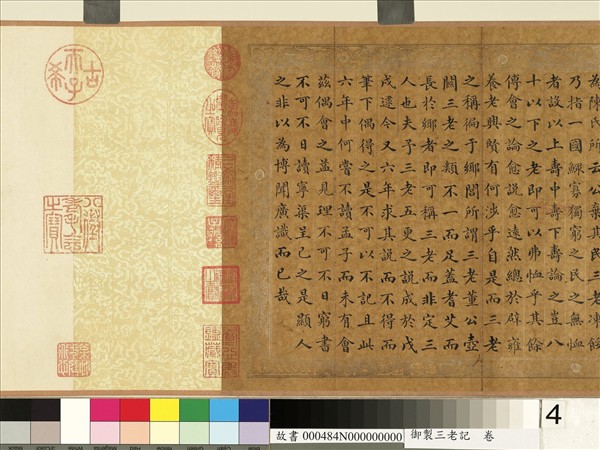 為陳氏所云公棄其民三老凍餒
乃指一國鰥寡獨窮之民之無恤
者設以上壽中壽下壽論之豈八
十以下之老即可以弗恤乎其餘
傅會之論愈説愈遠然總於辟雍
養老興賢有何涉乎自是而三老
之稱徧于鄉閭所謂三老董公壺
關三老之類不一而足蓋耆艾而
長於鄉者即可稱三老而非定三
人也夫予三老五更之説成於戊
戌遠今又六年求其説而不得而
筆下偶得之是不可以不記且此
六年中何嘗不讀孟子而未有會
茲偶會之益見理不可不日窮書
不可不日讀寧梁呈己之是顯人
之非以為博聞廣識而已哉
古希天子
八徵耄念之寶
故書 000484N000000000
御製三老記 卷
4